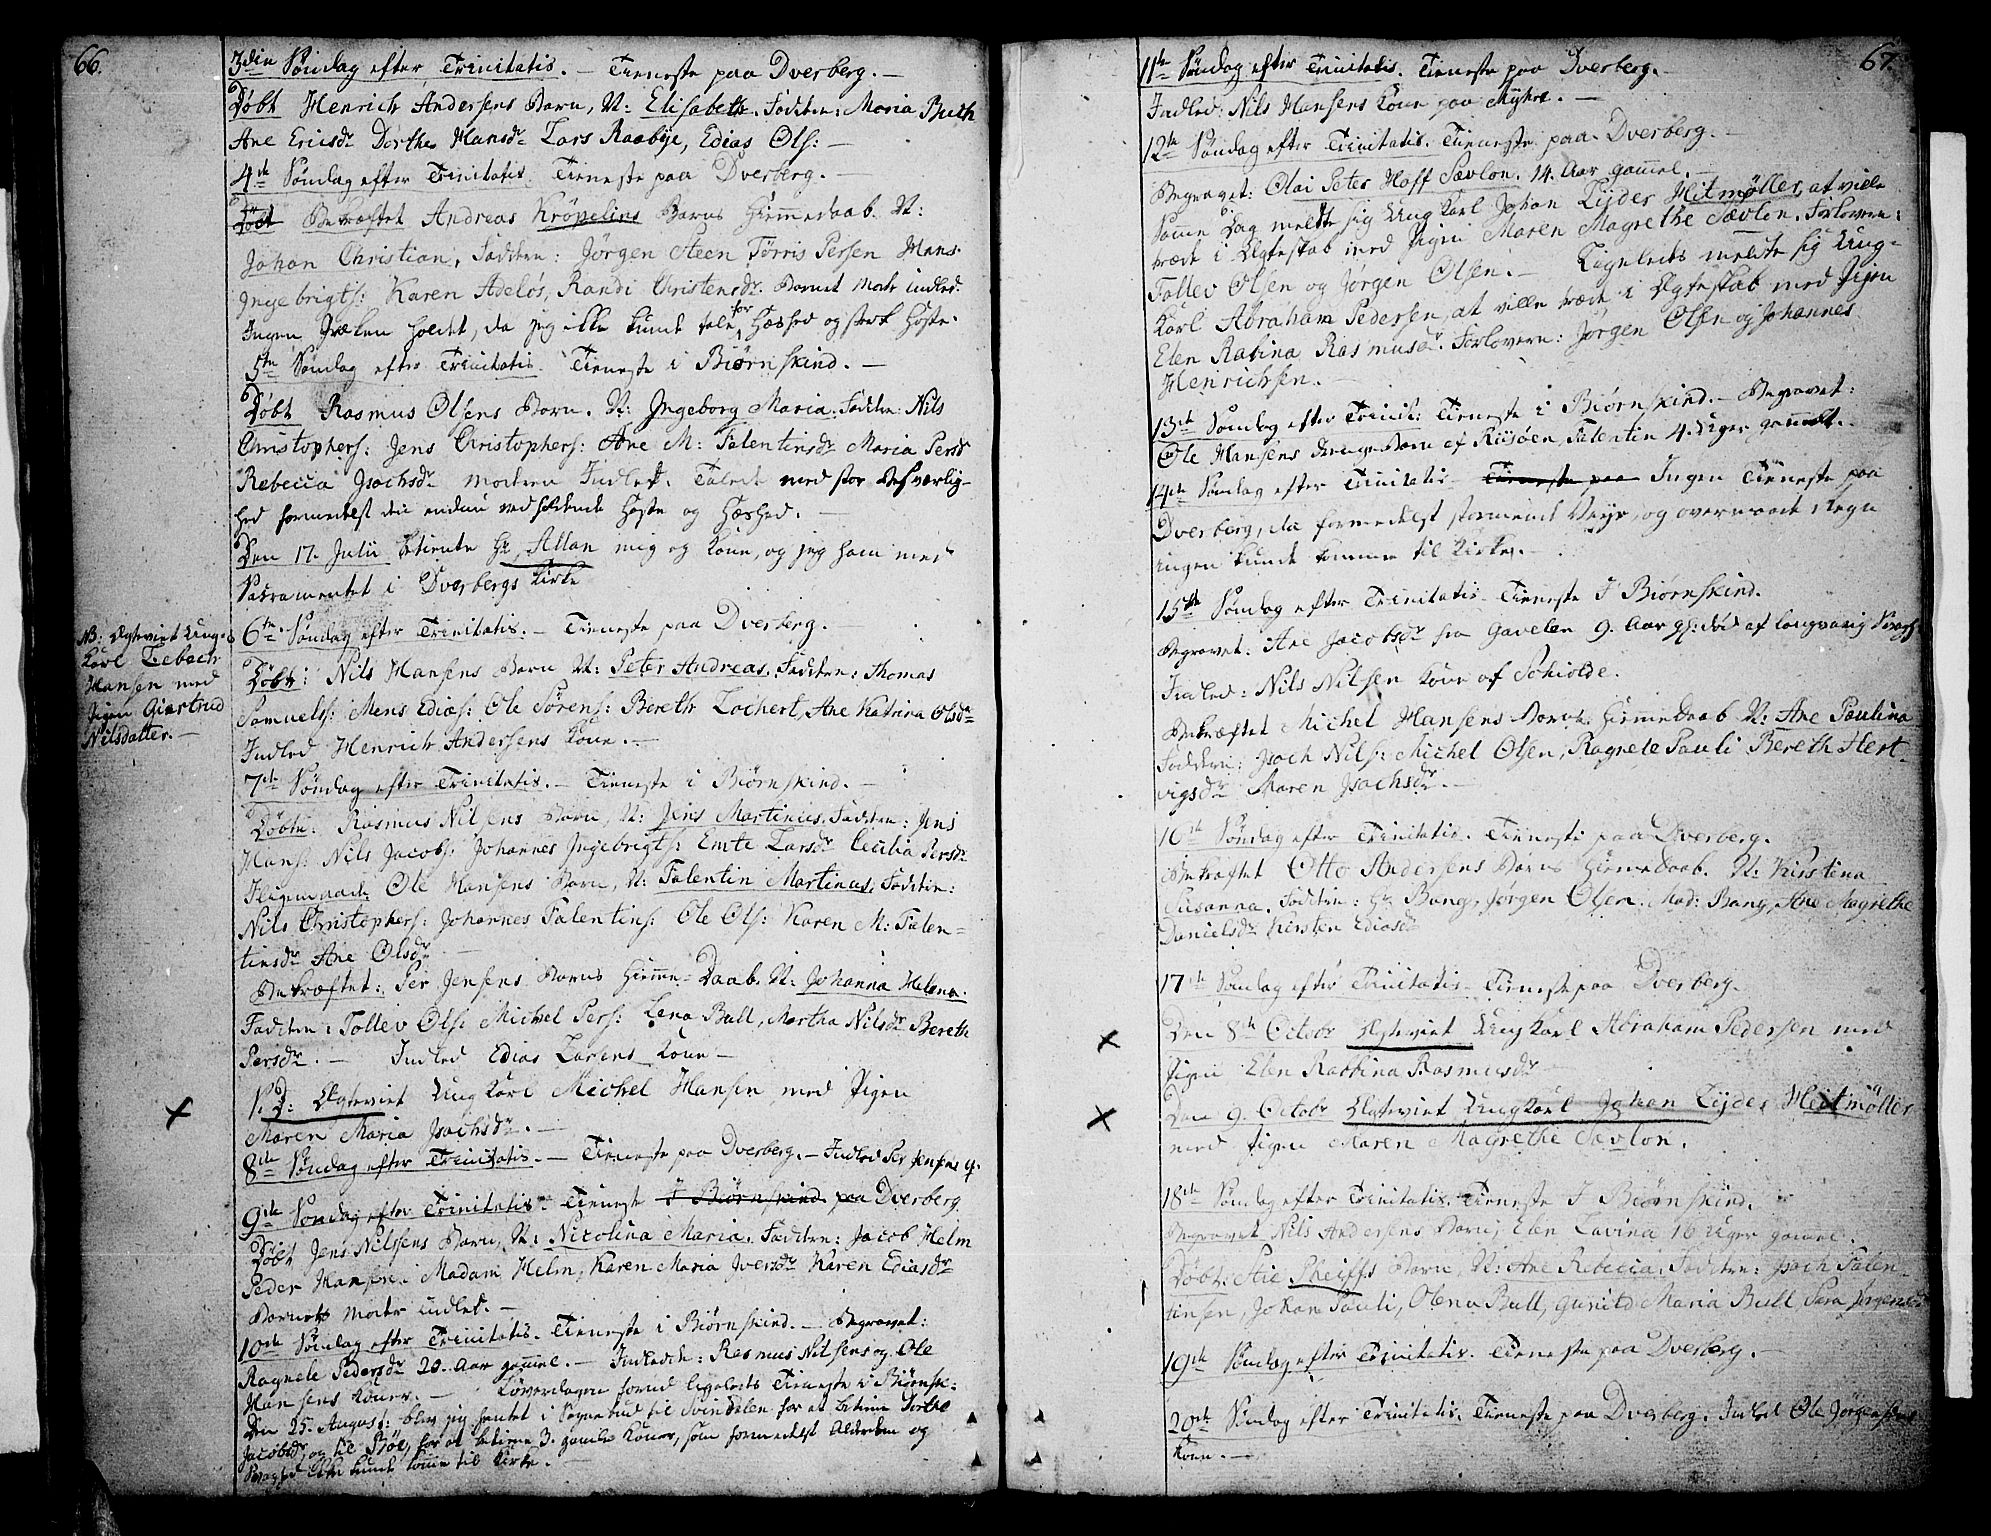 66.
3die Søndag efter Trinitatis. – Tieneste paa Dverberg. –
Døbt Henrich Andersens Barn, N: Elisabeth. Faddere: Maria Buth
Ane Ericsdr Dorthe Hansdr Lars Raabye, Edias Ols: –
4de Søndag efter Trinitatis. Tieneste paa Dverberg. –
Døbt Bekræftet Andreas Kröpelins Barns Hiemmedaab. N:
Johan Christian, Faddere: Jørgen Steen Tørris Persen Hans
Ingebrigts: Karen Adeløs, Randi Christensdr. Barnet Modr indled.
Ingen Præken holdet, da jeg ikke kunde tale for Hæshed og sterk Hoste.
5te Søndag efter Trinitatis. Tieneste i Biørnskind. –
Døbt Rasmus Olsens Barn. N: Ingeborg Maria. Faddere: Nils
Christophers: Jens Christophers: Ane M: Falentinsdr Maria Persdr
Rebecca Isachsdr Modren Indled. Talede med stor Besværlig-
hed formedelst den endnu vedholdende Hoste og Hæshed. –
Den 17. Julii betiente Hr. Allan mig og Kone, og jeg ham med
Sacramentet i Dverbergs Kirke
NB: Ægteviet Ung-
Karl Zebach
Hansen med
Pigen Giertrud
Nilsdatter. –
6te Søndag efter Trinitatis. – Tieneste paa Dverberg. –
Døbt: Nils Hansens Barn N: Peter Andreas. Faddere: Thomas
Samuels: Mens Edias: Ole Sörens: Bereth Lochert, Ane Katrina Olsdr
Indled Henrich Andersens Kone. –
7de Søndag efter Trinitatis. – Tieneste i Biørnskind. –
Døbte: Rasmus Nilsens Barn, N: Jens Martinus. Faddere: Jens
Hans: Nils Jacobs: Johannes Ingebrigts: Emte Larsdr Cecilia Persdr
Iligemaade Ole Hansens Barn, N: Falentin Martinus. Faddere:
Nils Christophers: Johannes Falentins: Ole Ols: Karen M: Falen-
tinsdr Ane Olsdr –
Bekræftet: Per Jensens Barns Hiemme-Daab. N: Johanna Helena.
Faddere: Tollev Ols: Michel Pers: Lena Bull, Martha Nilsdr Bereth
Persdr. – Indled Edias Larsens Kone –
S. D: Ægteviet Ung Karl Michel Hansen med Pigen
Maren Maria Isachsdr. –
8de Søndag efter Trinitatis. – Tieneste paa Dverberg. – Indled Per Jensens q.
9de Søndag efter Trinitatis. Tieneste I Biørnskind. paa Dverberg
Døbt Jens Nilsens Barn, N: Nicolina Maria. Faddere: Jacob Helm
Peder Hansen. Madam Helm, Karen Maria Iversdr Karen Ediasdr
Barnets Modr indled. –
10de Søndag efter Trinitatis. Tieneste i Biørnskind. – Begravet:
Ragnele Pedersdr 20. Aar gammel. – Indledde: Rasmus Nilsens og Ole
Hansens Koner. – Løverdagen forud ligeleds Tieneste i Biørnsk:
Den 25. August: blev jeg hentet i Sognebud til Svindalen for at betiene Dorthe
Jacobsdr og til Bøe, for at betiene 3. gamle Koner, som formedelst Alderdom og
Svaghed ikke kunde komme til Kirke. –
67.
11te Søndag efter Trinitatis. Tieneste paa Dverberg. –
Indled. Nils Hansens Kone paa Myhre. –
12te Søndag efter Trinitatis. Tieneste paa Dverberg. –
Begravet: Olai Peter Hoff Sævlon. 14. Aar gammel. –
Samme Dag meldte sig Ung Karl Johan Tijdes Heitmöller, at ville
træde i Ægteskab med Pigen Maren Magrethe Sævlon. Forlovere:
Tollev Olsen og Jørgen Olsen. – Ligeleds meldte sig Ung-
Karl Abraham Pedersen, at ville træde i Ægteskab med Pigen
Elen Rabina Rasmusdr. Forlovere: Jørgen Olsen og Johannes
Henrichsen. –
13de Søndag efter Trinit: Tieneste i Biørnskind. – Begravet:
Ole Hansens Drenge Barn af Riisöen, Falentin 4. Uger gammelt. –
14de Søndag efter Trinitatis Tieneste paa Ingen Tieneste paa
Dverberg, da formedelst stormende Veyr, og overmaade Regn
ingen kunde komme til Kirke. –
15de Søndag efter Trinitatis. Tieneste I Biörnskind.
Begravet: Ane Jacobsdr fra Gavelen 9. Aar gl: død af langvarig Svagh:
Indled: Nils Nilsen Kone af Schiolde.
Bekræftet Michel Hansens Barns Hiemmedaab N: Ane Paulina
Faddere: Isach Nils: Michel Olsen, Ragnele Pauli Bereth Hert-
vigsdr Maren Isachsdr. –
16de Søndag efter Trinitatis. Tieneste paa Dverberg.
Bekræftet Otto Andersens Barns Hiemedaab. N: Kirstina
Susanna. Faddere: Hr. Bang, Jørgen Olsen. Mad: Bang, Ane Magrethe
Danielsdr Kirsten Ediasdr
17de Søndag efter Trinitatis – Tieneste paa Dverberg.
Den 8de Octobr Ægteviet Ung Karl Abraham Pedersen med
Pigen Elen Rabbina Rasmusdr –
Den 9. Octobr Ægteviet Ung Karl Johan Tijdes Heitmöller
med Pigen Maren Magrethe Sævlon.
18de Søndag efter Trinitatis. Tieneste I Biörnskind.
Begravet Nils Andersens Barn, Elen Lavina 16 Uger gammel.
Døbt: Pheiffs Barn, N: Ane Rebecca. Faddere: Isach Falen-
tinsen, Johan Pauli, Olena Bull, Gunild Maria Bull, Sara Jørgensdr
19de Søndag efter Trinitatis. Tieneste paa Dverberg. –
20de Søndag efter Trinitatis. Tieneste paa Dverberg. Indled Ole Jörgensens
Kone. –